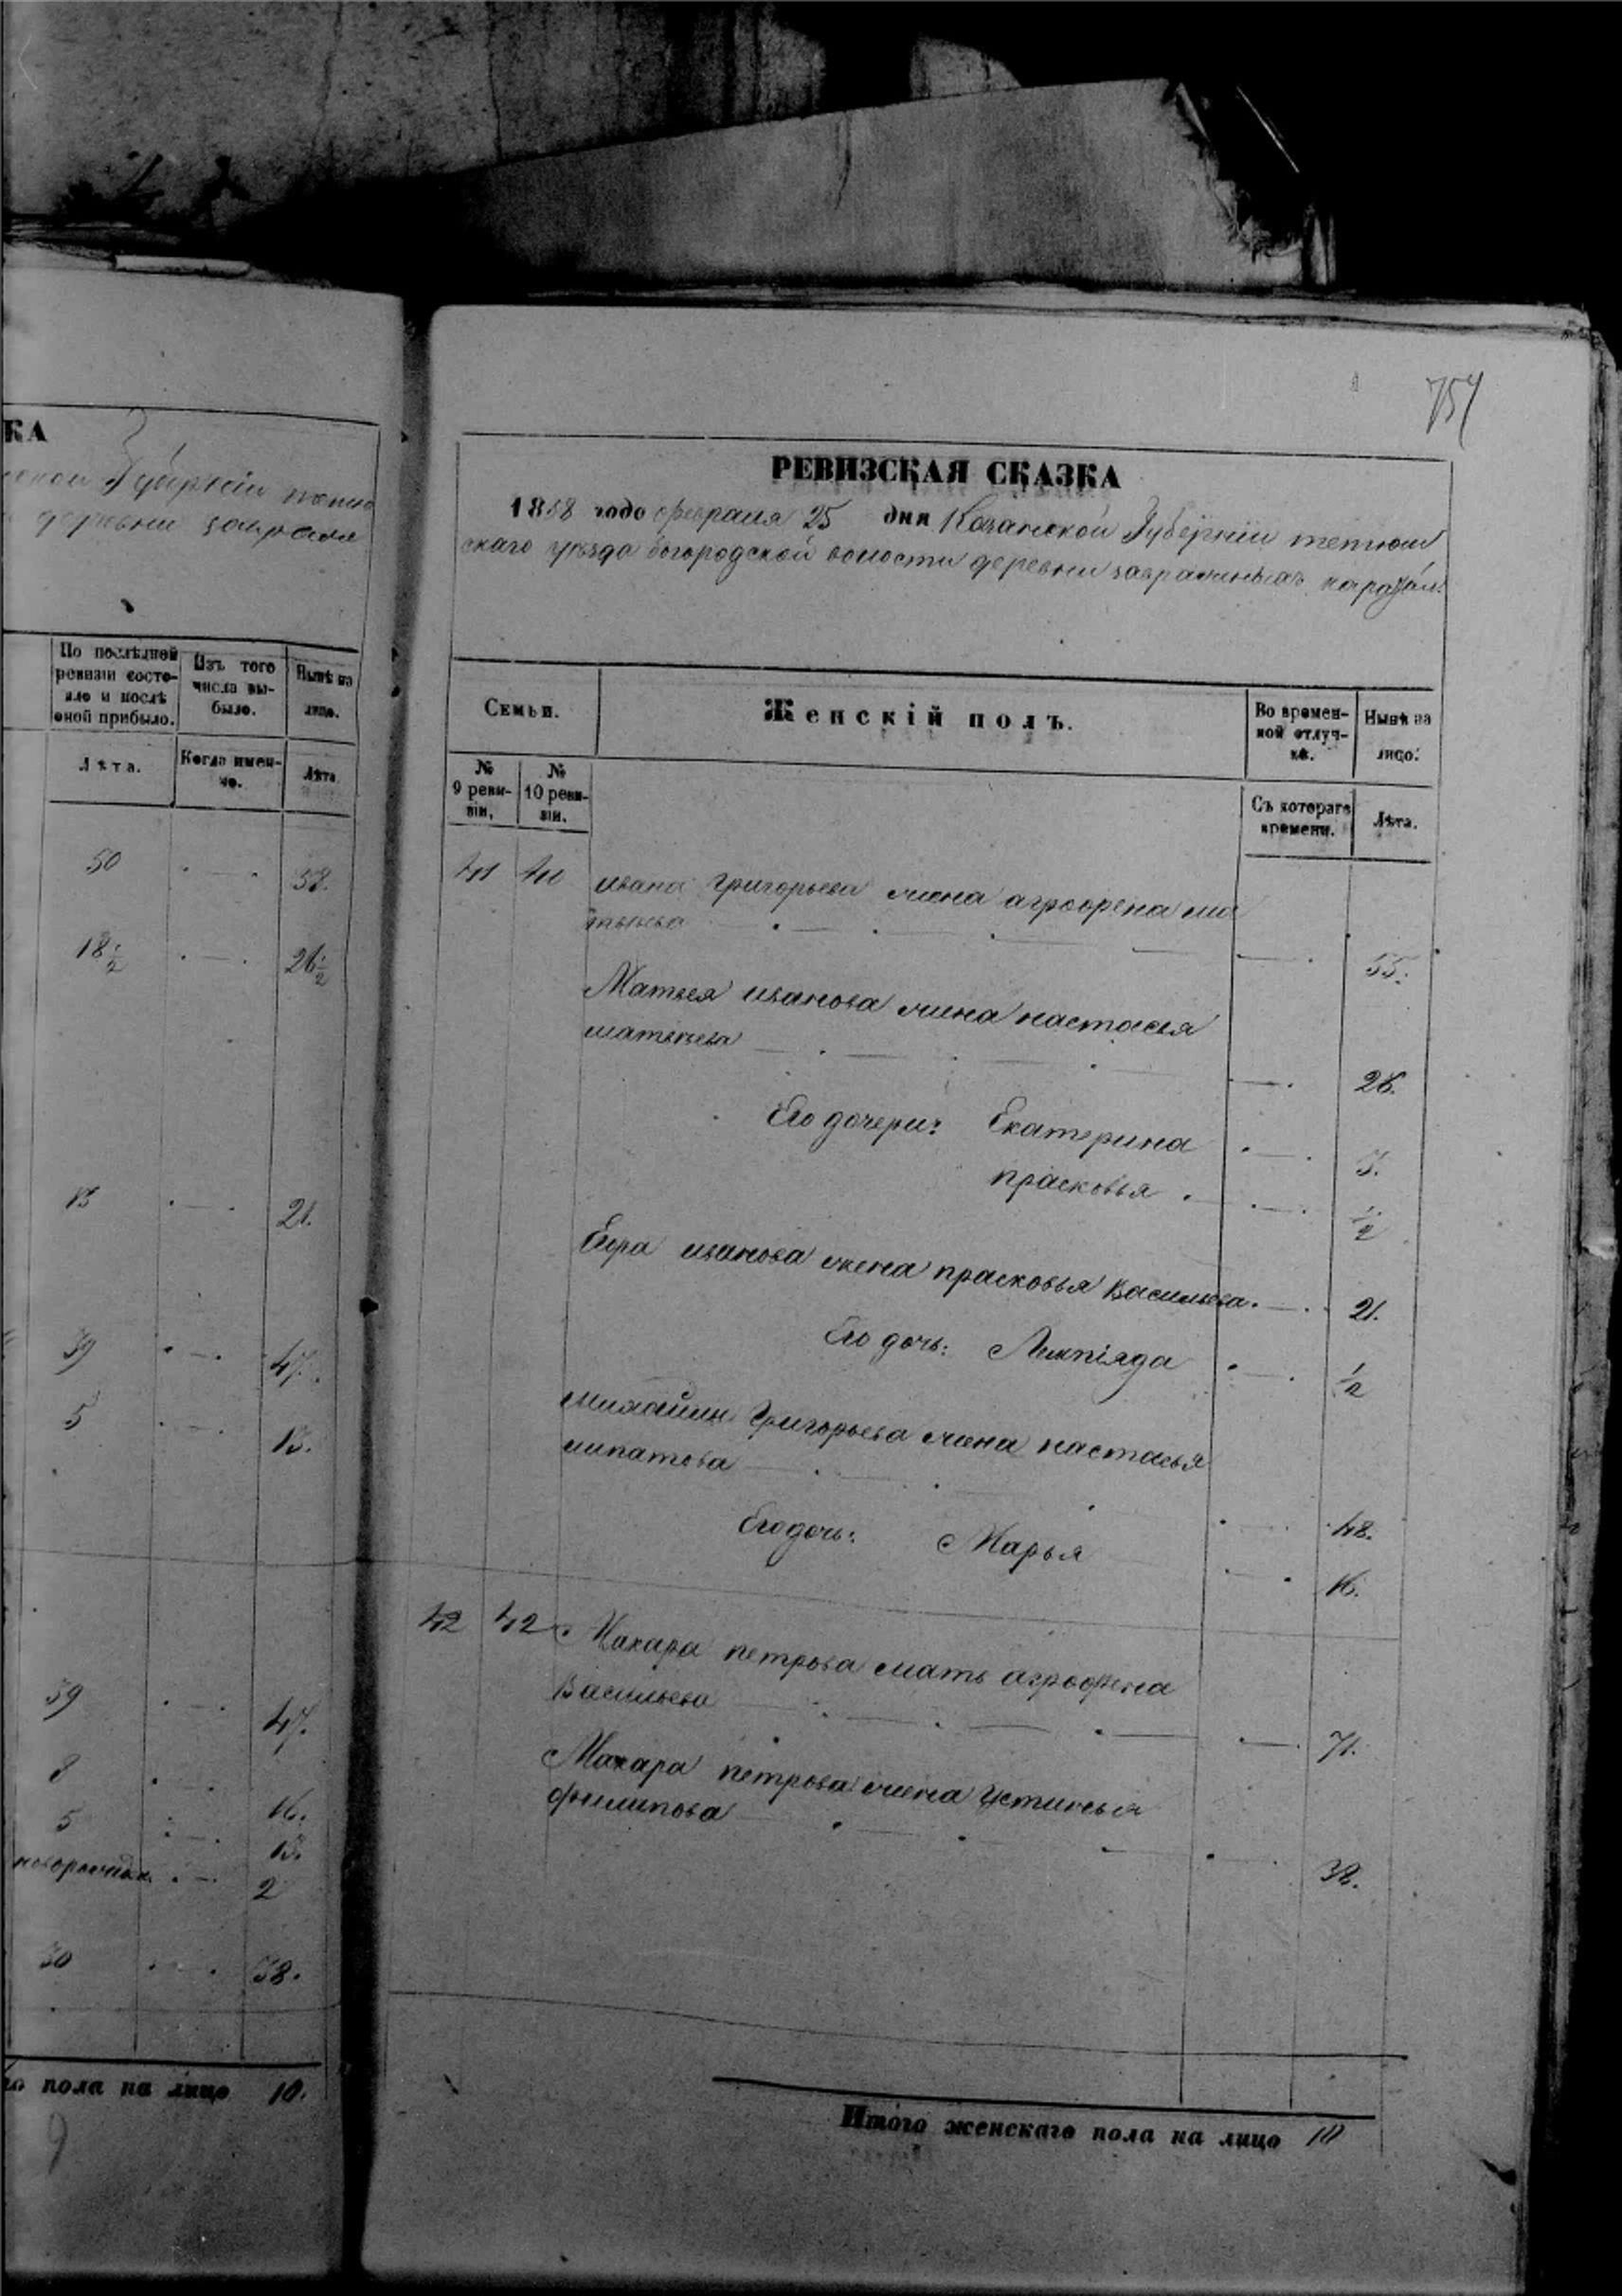 КА
Губерніи
деревни
По послѣдней
ревизіи состо-
яло и послѣ
оной прибыло.
Изъ того
числа вы-
было.
Нынѣ на
лицо.
Лѣта.
Когда имен-
но.
Лѣта
50
18 1/2
26 1/2
13
21.
39
47.
5
13.
39
47.
8
16.
5
13.
2
30
38.
го пола на лицо 10.
РЕВИЗСКАЯ СКАЗКА
1858 года февраля 25 дня Казанской Губерніи тетюш
скаго уѣзда богородской волости деревни
Семьи.
Женскій полъ.
Во времен-
ной отлуч-
кѣ.
Нынѣ на
лицо.
№
9 реви-
зіи,
№
10 реви-
зіи.
Съ котораго
времени.
Лѣта.
41 41 ивана Григорьева жена агрофена ма
твѣева
55.
Матвея иванова жена настасья
матвѣева
26.
Его дочери: Екатерина
прасковья
1/2
иванова жена прасковья Васильева
21.
Его дочь: Лимпіяда
1/2
михайлы Григорьева жена настасья
липатова
48.
Его дочь: Марья
16.
42 42 Макара петрова мать агрофена
Васильева
71.
Макара петрова жена Устинья
филипова
38.
Итого женскаго пола на лицо 10